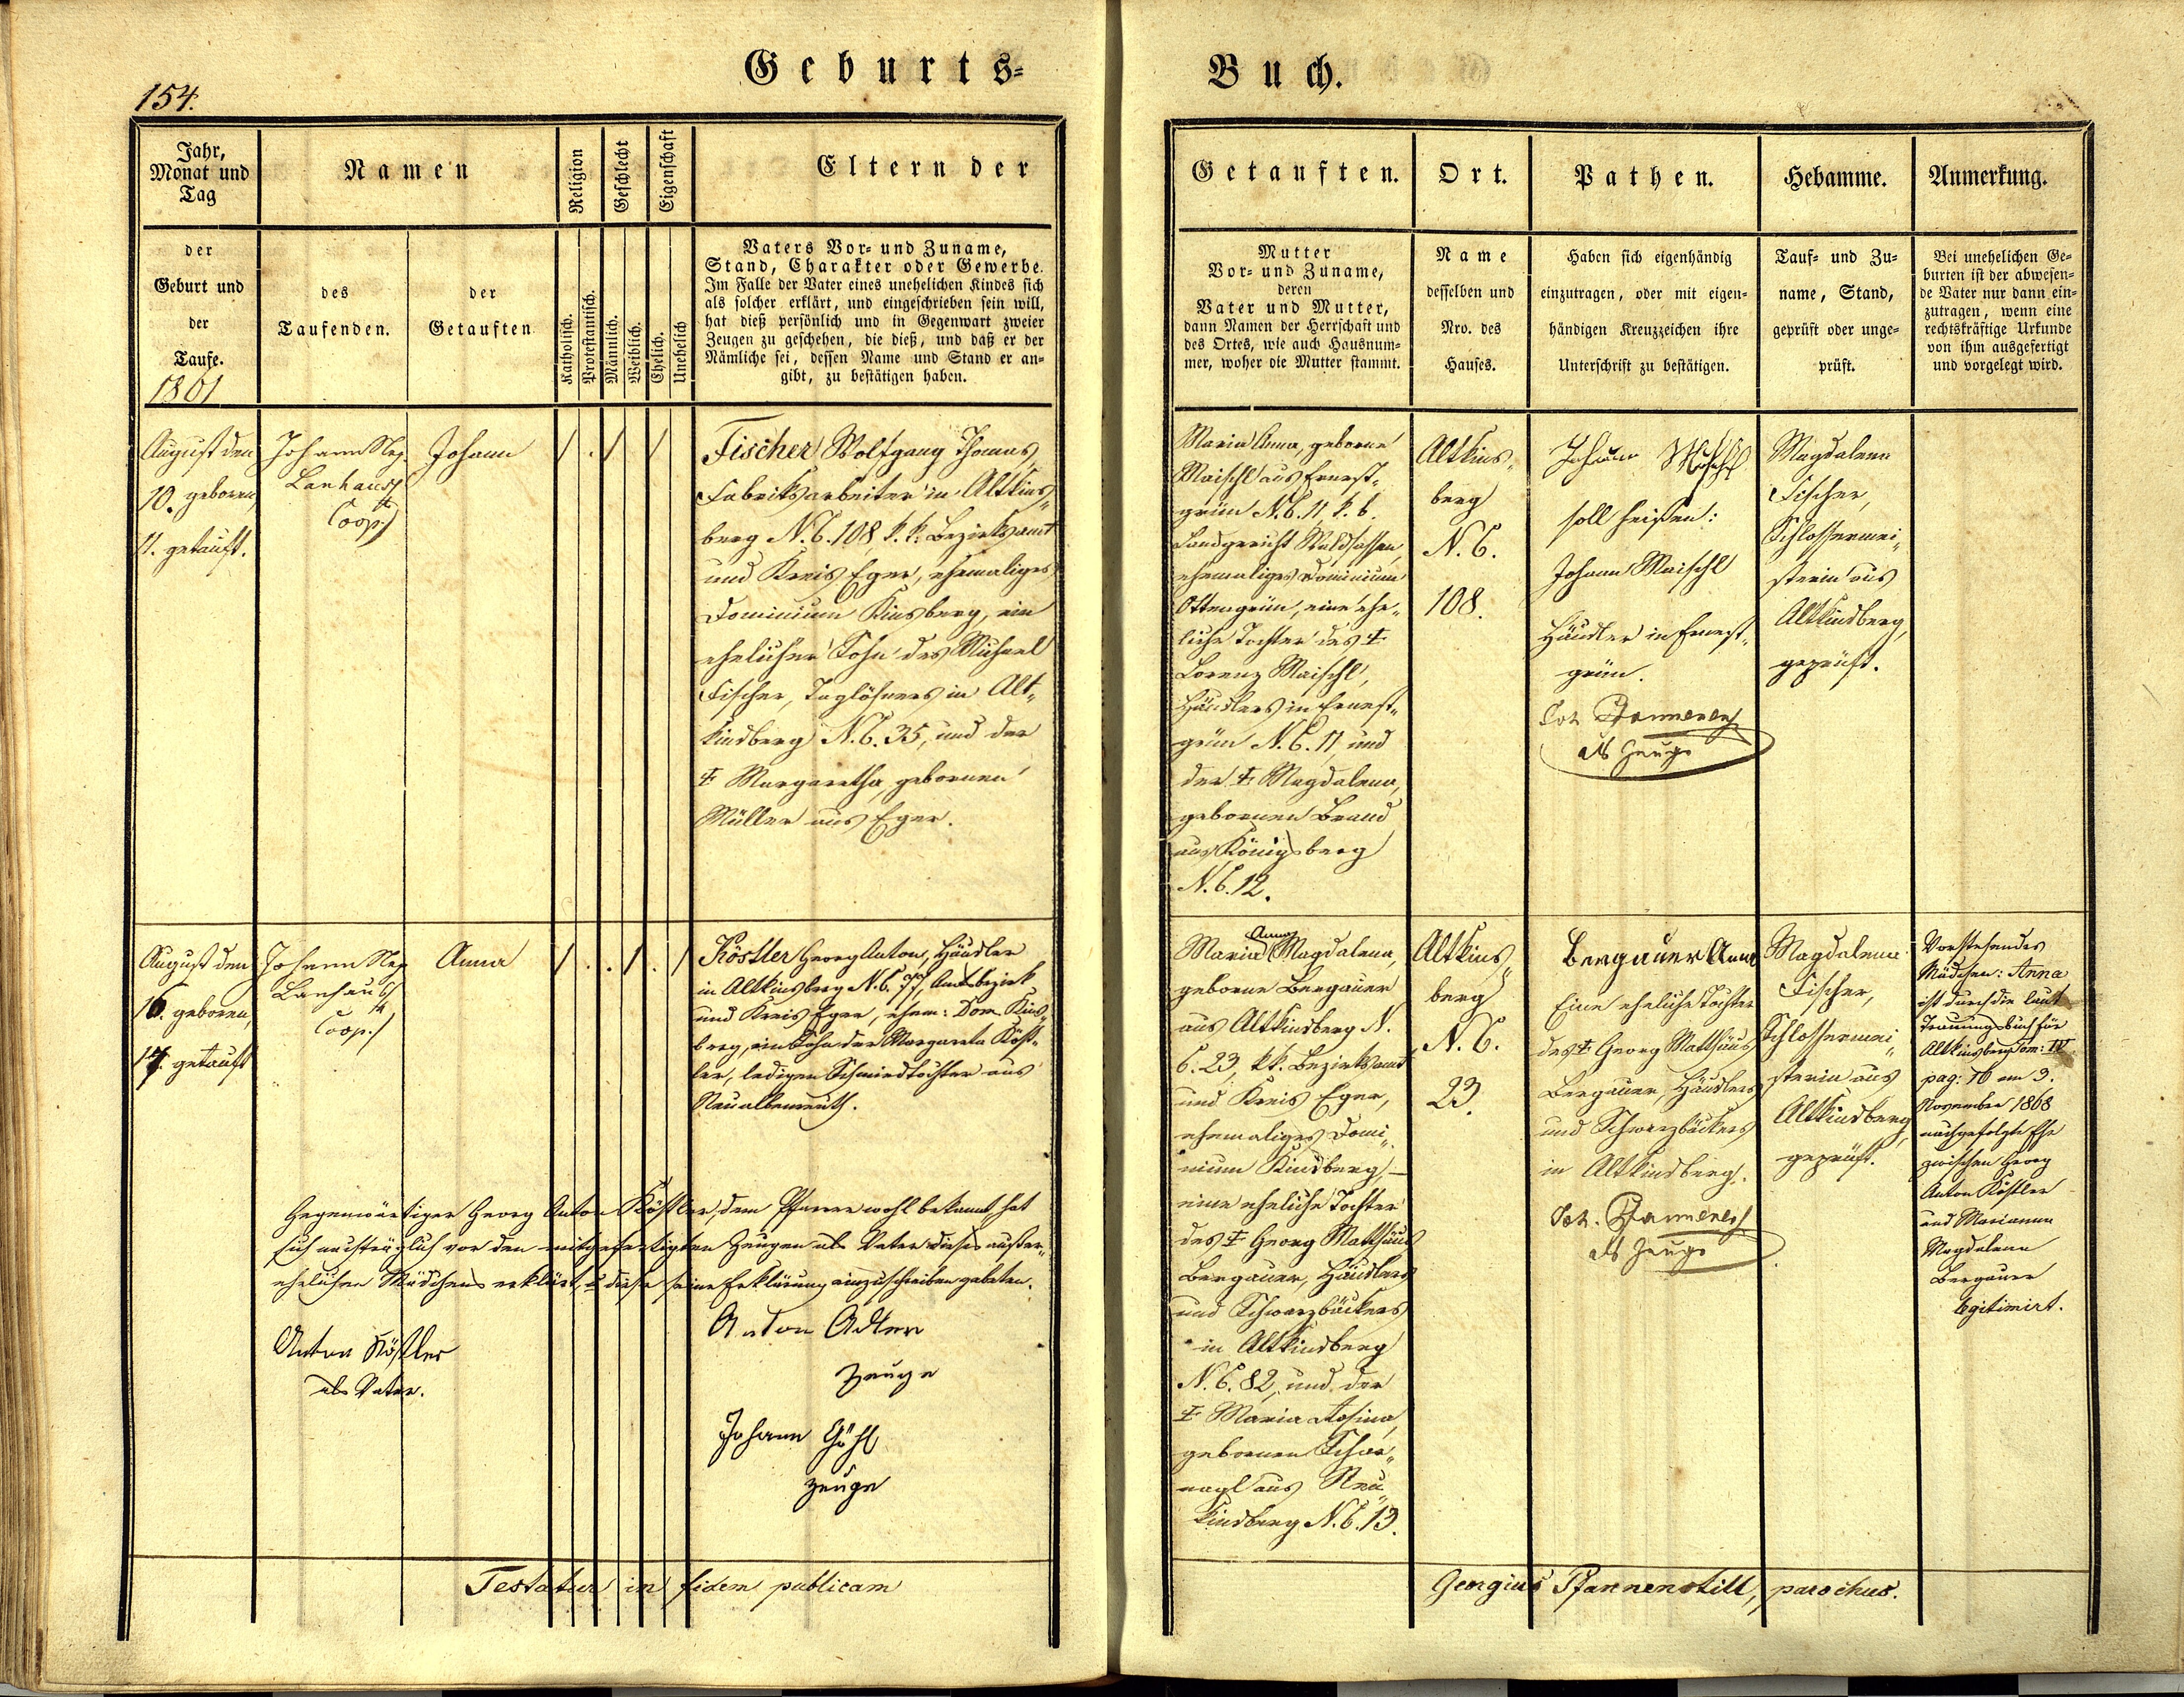 154.
Geburts-
Jahr,
Monat und
Tag
Namen
Religion
Geschlecht
Eigenschaft
Eltern der
der
Geburt und
der
Taufe.
1861
des
Taufenden.
der
Getauften
Katholisch.
Protestantisch.
Männlich.
Weiblich.
Ehelich.
Unehelich
Vaters Vor- und Zuname,
Stand, Charakter oder Gewerbe.
Im Falle der Vater eines unehelichen Kindes sich
als solcher erklärt, und eingeschrieben sein will,
hat dieß persönlich und in Gegenwart zweier
Zeugen zu geschehen, die dieß, und daß er der
Nämliche sei, dessen Name und Stand er an-
gibt, zu bestätigen haben.
August den
10. geboren,
11. getauft.
Johann Nep.
Lanhaus
Coop.
Johann
/ . / /
Fischer Wolfgang Thomas,
Fabriksarbeiter in Altkins-
berg N.C. 108, k.k. Bezirksamt
und Kreis Eger, ehemaliges
Dominium Kinsberg, ein
ehelicher Sohn des Michael
Fischer, Taglöhners in Alt-
kindberg N.C. 35, und der
‡ Margaretha, gebornen
Müller aus Eger.
August den
16. geboren,
17. getauft
Johann Nep
Lanhaus
Coop.
Anna
/ . . / . /
Köstler Georg Anton, Händler
in Altkinsberg N.C. 77, Amtsbezirk
und Kreis Eger, ehem: Dom. Kins-
berg, ein Sohn der Margareta Köst-
ler, ledigen Schmiedtochter aus
Neualbenreuth.
Gegenwärtiger Georg Anton Köstler, dem Pfarrer wohl bekannt hat
sich nachträglich vor den mitgefertigten Zeugen als Vater dieses außer-
ehelichen Mädchens erklärt, u diese seine Erklärung einzuschreiben gebeten.
Anton Köstler
als Vater.
Anton Adler
Zeuge
Johann Göhl
Zeuge
Testatur in fidem publicam
Buch.
Getauften.
Ort.
Pathen.
Hebamme.
Anmerkung.
Mutter
Vor- und Zuname,
deren
Vater und Mutter,
dann Namen der Herrschaft und
des Ortes, wie auch Hausnum-
mer, woher die Mutter stammt.
Name
desselben und
Nro. des
Hauses.
Haben sich eigenhändig
einzutragen, oder mit eigen-
händigen Kreuzzeichen ihre
Unterschrift zu bestätigen.
Tauf- und Zu-
name, Stand,
geprüft oder unge-
prüft.
Bei unehelichen Ge-
burten ist der abwesen-
de Vater nur dann ein-
zutragen, wenn eine
rechtskräftige Urkunde
von ihm ausgefertigt
und vorgelegt wird.
Maria Anna, geborne
Maischl aus Ernest-
grün N.C. 11 k. b.
Landgericht Waldsassen,
ehemaliges Dominium
Ottengrün, eine ehe-
liche Tochter des ‡
Lorenz Maischl,
Händlers in Ernest-
grün N.C. 11 und
der ‡ Magdalena,
gebornen Brand
aus Königsberg
N.C. 12.
Altkins-
berg
N.C.
108.
Johann
soll heißen:
Johann Maischl
Händler in Ernest-
grün.
als Zeuge
Magdalena
Fischer,
Schlossermei-
sterin aus
Altkindberg,
geprüft.
Maria Anna Magdalena,
geborne Bergauer
aus Altkindberg N.
C. 23, k.k. Bezirksamt
und Kreis Eger,
ehemaliges Domi-
nium Kindberg, –
eine eheliche Tochter
des ‡ Georg Matthäus
Bergauer, Händlers
und Schwarzbäckers
in Altkindberg
N.C. 82, und der
‡ Maria Rosina,
gebornen Schar-
nagl aus Neu-
kindberg N.C. 13.
Altkins-
berg
N.C.
23.
Bergauer Anna
Eine eheliche Tochter
des ‡ Georg Matthäus
Bergauer, Händlers
und Schwarzbäckers
in Altkindberg.
als Zeuge
Magdalena
Fischer,
Schlossermei-
sterin aus
Altkindberg,
geprüft.
Vorstehendes
Mädchen: Anna
ist durch die laut
Trauungsbuch für
Altkinsberg Tom: IV
pag: 76 am 3.
November 1868
nachgefolgte Ehe
zwischen Georg
Anton Köstler
und Marianna
Magdalena
Bergauer
legitimirt.
Georgius Pfannenstill, parochus.